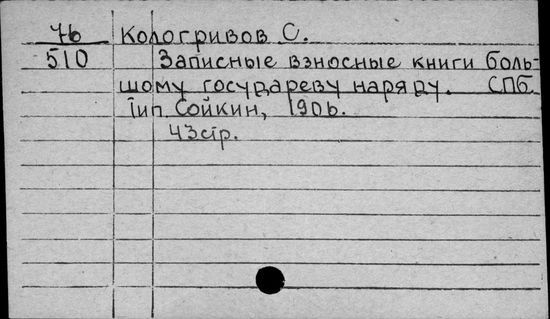 76 Кологривов С.
510 Записные взносные книги боль-
шому государеву наряду. СПб.
Тип. Сойкин, 1906.
43стр.